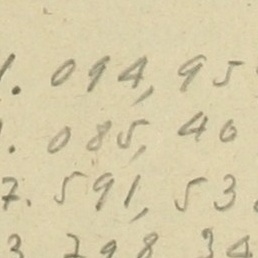 1. 094, 95
1. 085, 40
7. 591, 53
3 798 34